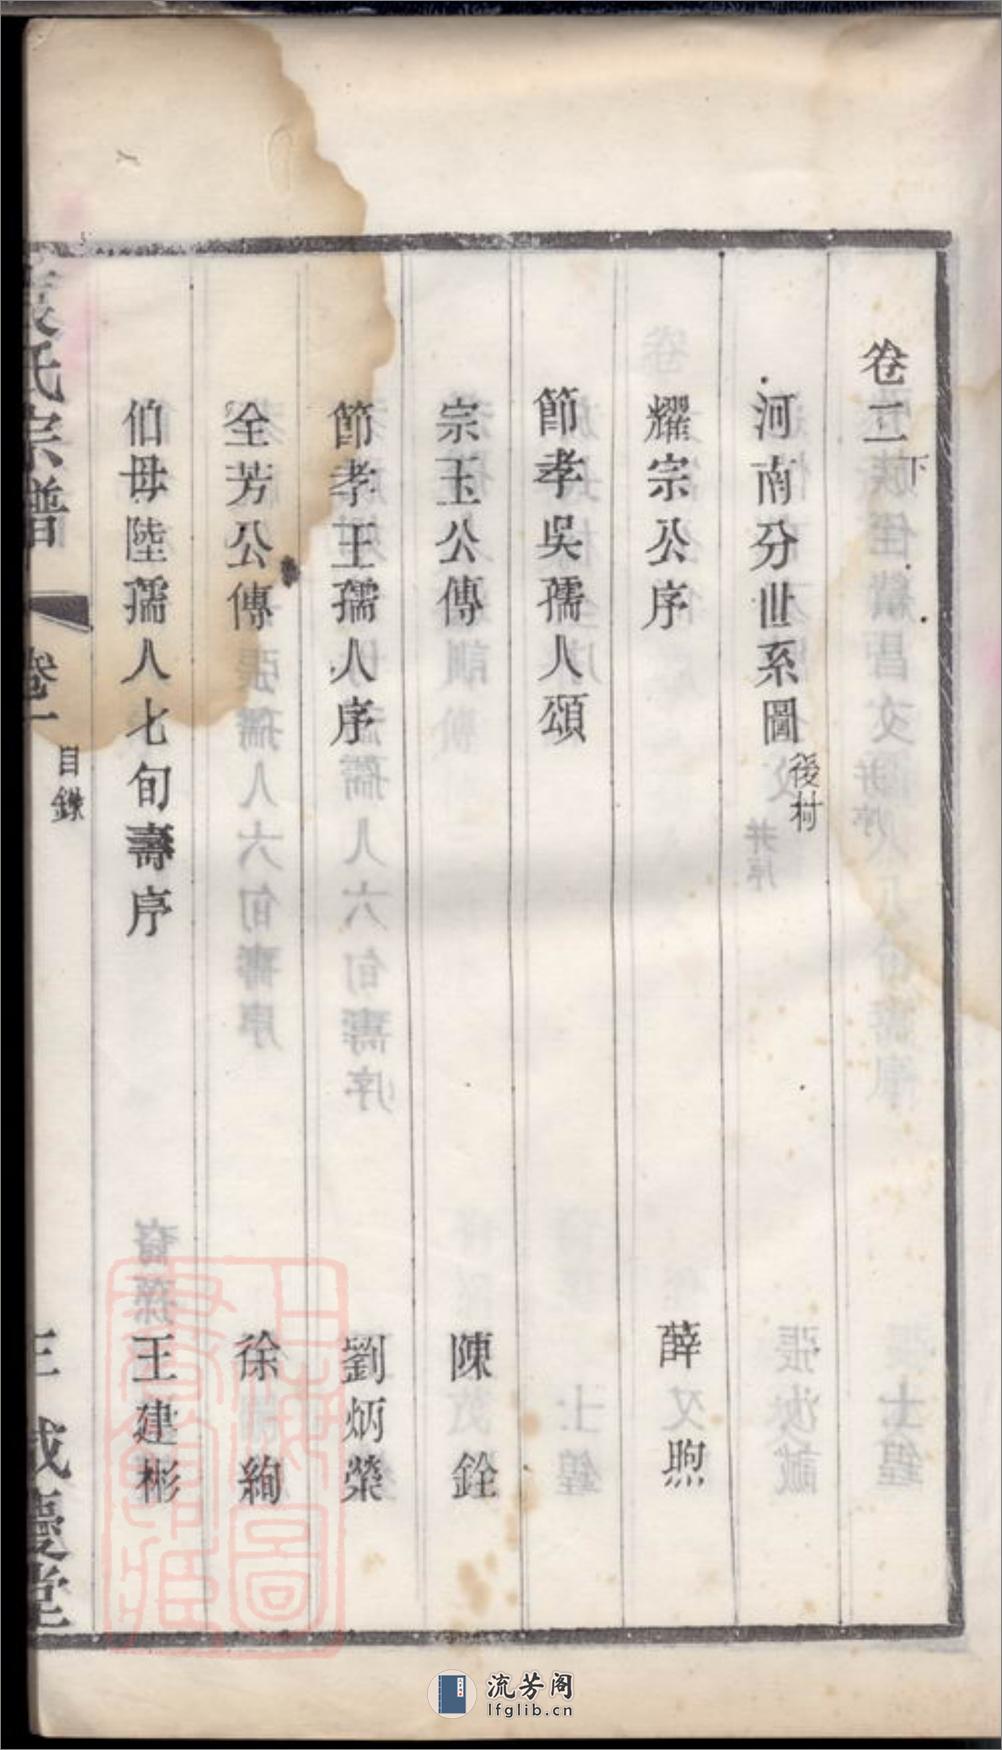 卷二下
河南分世系圖後村
耀宗公序 薛煦
節孝吳孺人頌
宗玉公傳 陳銓
節孝王孺人序 劉炳榮
全芳公傳 徐絢
伯母陸孺人七旬壽序 王建彬
氏宗譜 卷一 目錄 三 成慶堂
上海圖書館藏
流芳阁
lfglib.cn